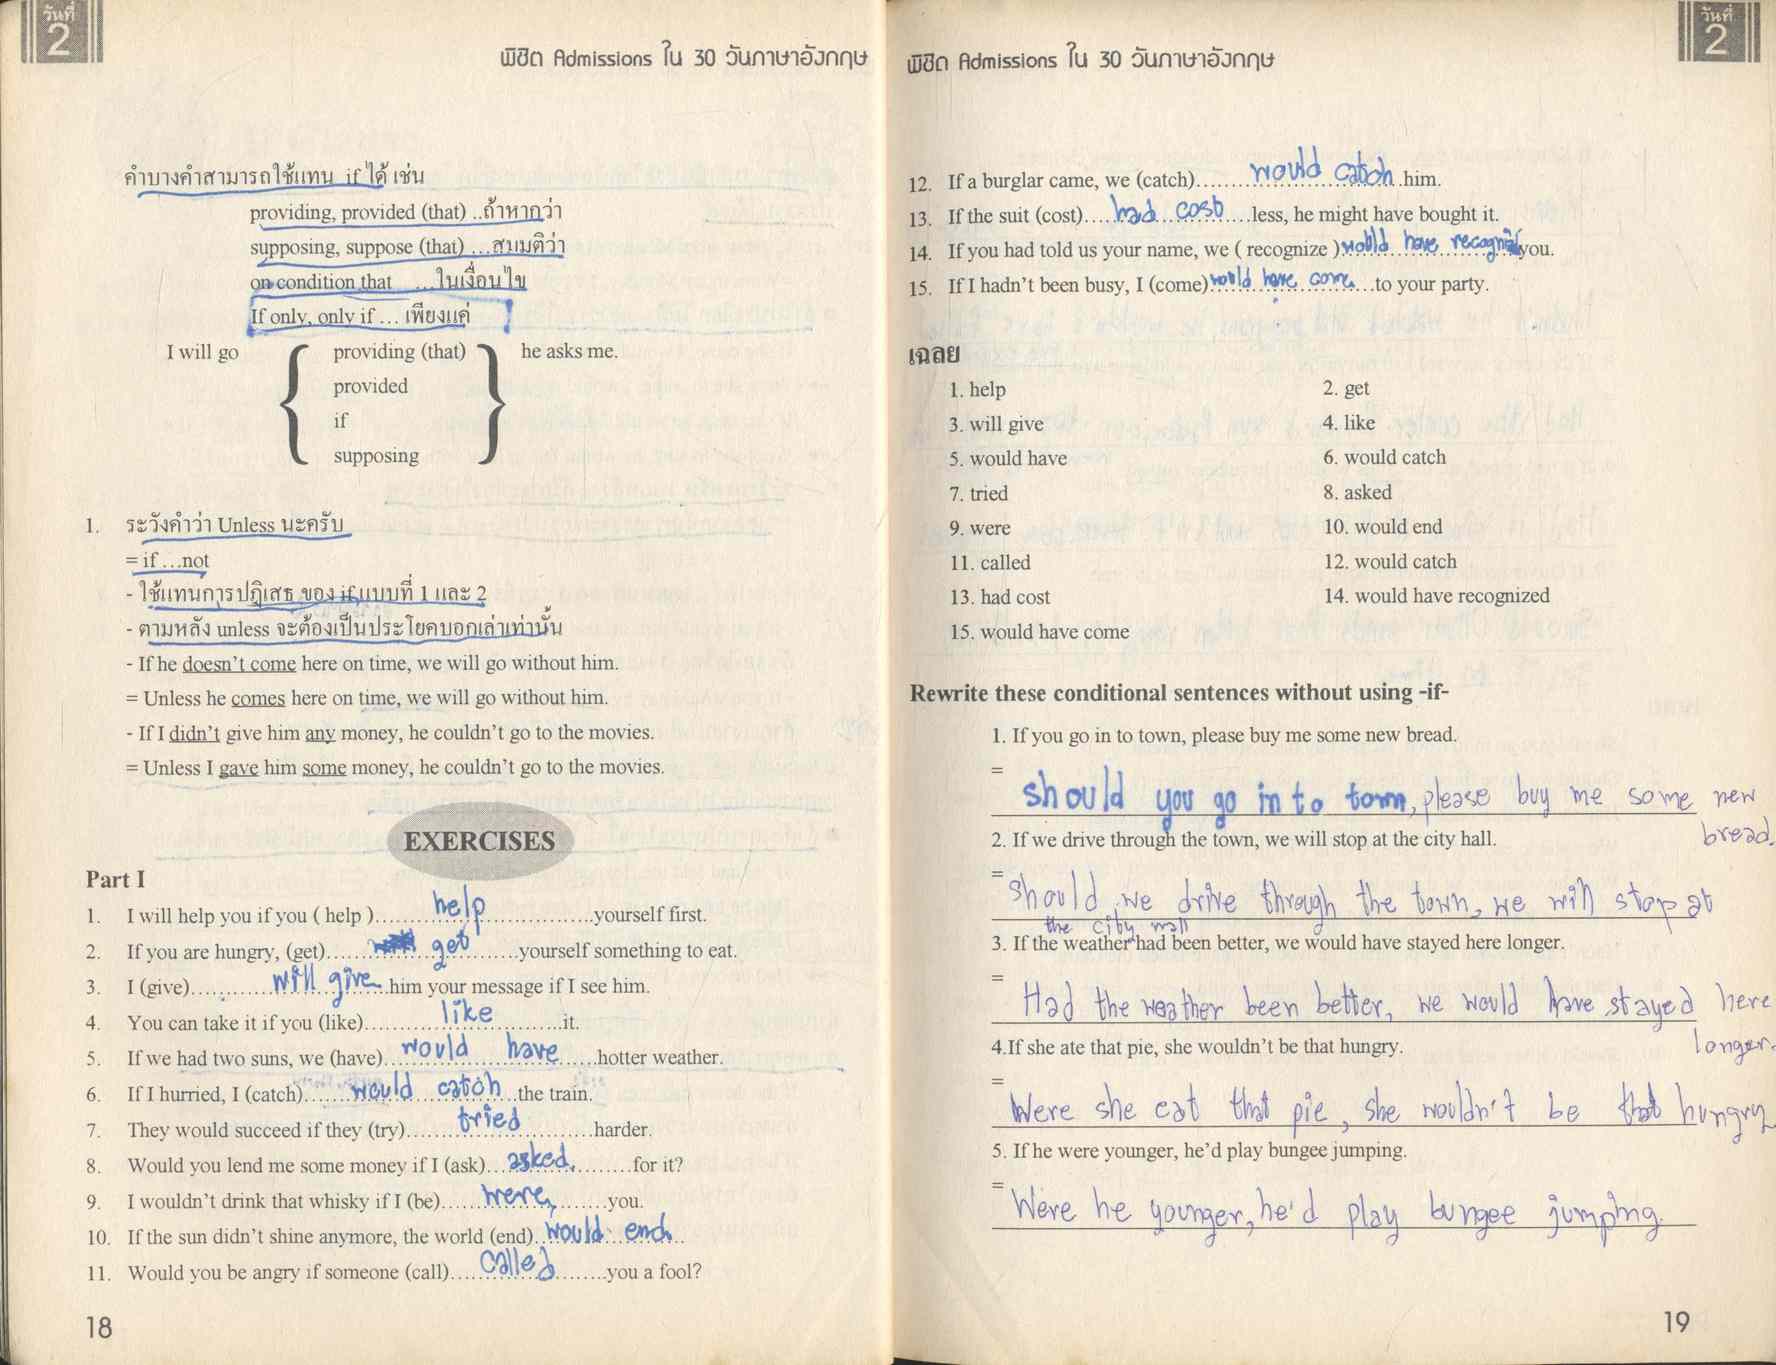 วันที่
2
พิชิต Admissions ใน 30 วันภาษาอังกฤษ
คำบางคำสามารถใช้แทน if ได้ เช่น
providing, provided (that) ..ถ้าหากว่า
supposing, suppose (that) ...สมมติว่า
on condition that ...ในเงื่อนไข
If only, only if ... เพียงแค่
I will go { providing (that) } he asks me.
provided
if
supposing
1. ระวังคำว่า Unless นะครับ
= if ...not
- ใช้แทนการปฏิเสธ ของ if แบบที่ 1 และ 2
- ตามหลัง unless จะต้องเป็นประโยคบอกเล่าเท่านั้น
- If he doesn't come here on time, we will go without him.
= Unless he comes here on time, we will go without him.
- If I didn't give him any money, he couldn't go to the movies.
= Unless I gave him some money, he couldn't go to the movies.
EXERCISES
Part I
1. I will help you if you ( help ) help yourself first.
2. If you are hungry, (get) get yourself something to eat.
3. I (give) will give him your message if I see him.
4. You can take it if you (like) like it.
5. If we had two suns, we (have) would have hotter weather.
6. If I hurried, I (catch) would catch the train.
7. They would succeed if they (try) tried harder.
8. Would you lend me some money if I (ask) asked for it?
9. I wouldn't drink that whisky if I (be) were you.
10. If the sun didn't shine anymore, the world (end) would end
11. Would you be angry if someone (call) called you a fool?
18
วันที่
2
พิชิต Admissions ใน 30 วันภาษาอังกฤษ
12. If a burglar came, we (catch) would catch him.
13. If the suit (cost) had cost less, he might have bought it.
14. If you had told us your name, we ( recognize ) would have recognized you.
15. If I hadn't been busy, I (come) would have come to your party.
เฉลย
1. help 2. get
3. will give 4. like
5. would have 6. would catch
7. tried 8. asked
9. were 10. would end
11. called 12. would catch
13. had cost 14. would have recognized
15. would have come
Rewrite these conditional sentences without using -if-
1. If you go in to town, please buy me some new bread.
= should you go in to town, please buy me some new
bread.
2. If we drive through the town, we will stop at the city hall.
= should we drive through the town, we will stop at
the city mall
3. If the weather had been better, we would have stayed here longer.
= Had the weather been better, we would have stayed here
longer.
4.If she ate that pie, she wouldn't be that hungry.
= Were she eat that pie, she wouldn't be that hungry
5. If he were younger, he'd play bungee jumping.
= Were he younger, he'd play bungee jumping.
19